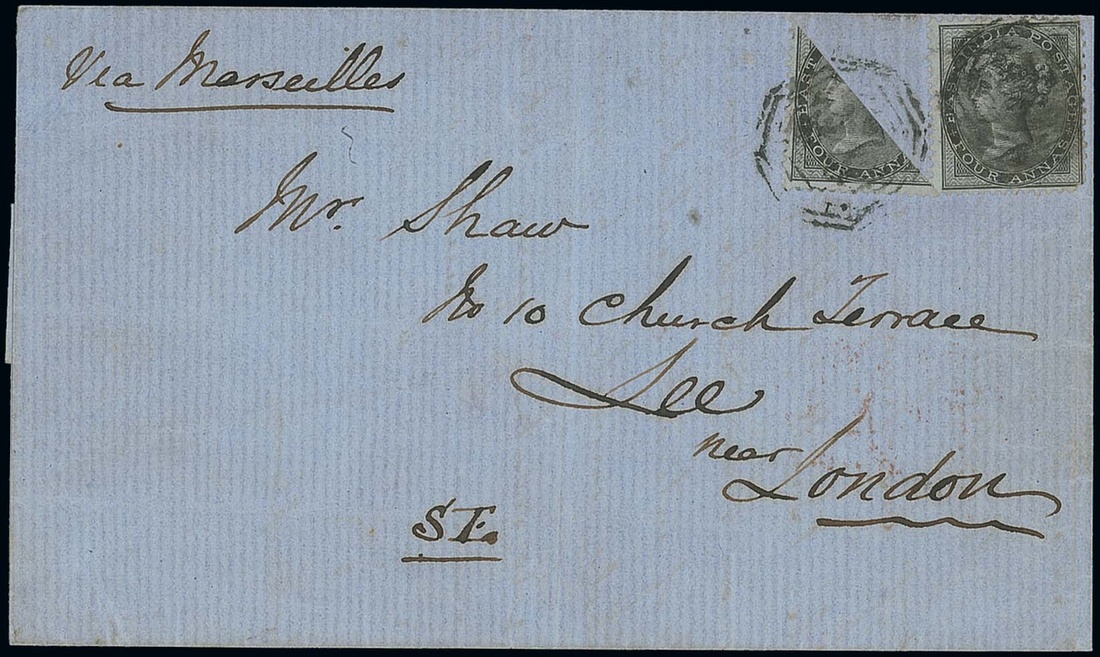 Via Marseilles
EAST
FOUR ANNA
EAST INDIA POSTAGE
FOUR ANNAS
Mr. Shaw
No 10 Church Terrace
Lee
near
London
S.E.